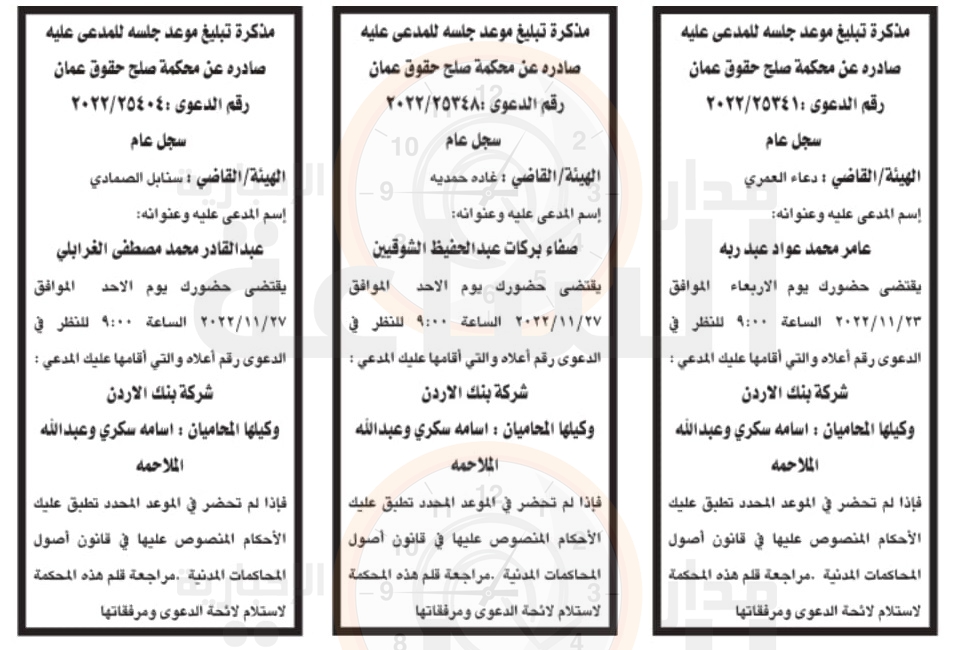 مذكرة تبليغ موعد جلسه للمدعى عليه
صادره عن محكمة صلح حقوق عمان
رقم الدعوى :٢٠٢٢/٢٥٣٤١
سجل عام
الهيئة/القاضي : دعاء العمري
إسم المدعى عليه وعنوانه:
عامر محمد عواد عبد ربه
يقتضى حضورك يوم الاربعاء الموافق
٢٠٢٢/١١/٢٣ الساعة ٩:٠٠ للنظر في
الدعوى رقم أعلاه والتي أقامها عليك المدعي :
شركة بنك الاردن
وكيلها المحاميان : اسامه سكري وعبدالله
الملاحمه
فإذا لم تحضر في الموعد المحدد تطبق عليك
الأحكام المنصوص عليها في قانون أصول
المحاكمات المدنية .مراجعة قلم هذه المحكمة
لاستلام لائحة الدعوى ومرفقاتها
مذكرة تبليغ موعد جلسه للمدعى عليه
صادره عن محكمة صلح حقوق عمان
رقم الدعوى :٢٠٢٢/٢٥٣٤٨
سجل عام
الهيئة/القاضي : غاده حمديه
إسم المدعى عليه وعنوانه:
صفاء بركات عبدالحفيظ الشوقيين
يقتضى حضورك يوم الاحد الموافق
٢٠٢٢/١١/٢٧ الساعة ٩:٠٠ للنظر في
الدعوى رقم أعلاه والتي أقامها عليك المدعي :
شركة بنك الاردن
وكيلها المحاميان : اسامه سكري وعبدالله
الملاحمه
فإذا لم تحضر في الموعد المحدد تطبق عليك
الأحكام المنصوص عليها في قانون أصول
المحاكمات المدنية .مراجعة قلم هذه المحكمة
لاستلام لائحة الدعوى ومرفقاتها
مذكرة تبليغ موعد جلسه للمدعى عليه
صادره عن محكمة صلح حقوق عمان
رقم الدعوى :٢٠٢٢/٢٥٤٠٤
سجل عام
الهيئة/القاضي : سنابل الصمادي
إسم المدعى عليه وعنوانه:
عبدالقادر محمد مصطفى الغرابلي
يقتضى حضورك يوم الاحد الموافق
٢٠٢٢/١١/٢٧ الساعة ٩:٠٠ للنظر في
الدعوى رقم أعلاه والتي أقامها عليك المدعي :
شركة بنك الاردن
وكيلها المحاميان : اسامه سكري وعبدالله
الملاحمه
فإذا لم تحضر في الموعد المحدد تطبق عليك
الأحكام المنصوص عليها في قانون أصول
المحاكمات المدنية .مراجعة قلم هذه المحكمة
لاستلام لائحة الدعوى ومرفقاتها
مدار
الساعة
الإخبارية